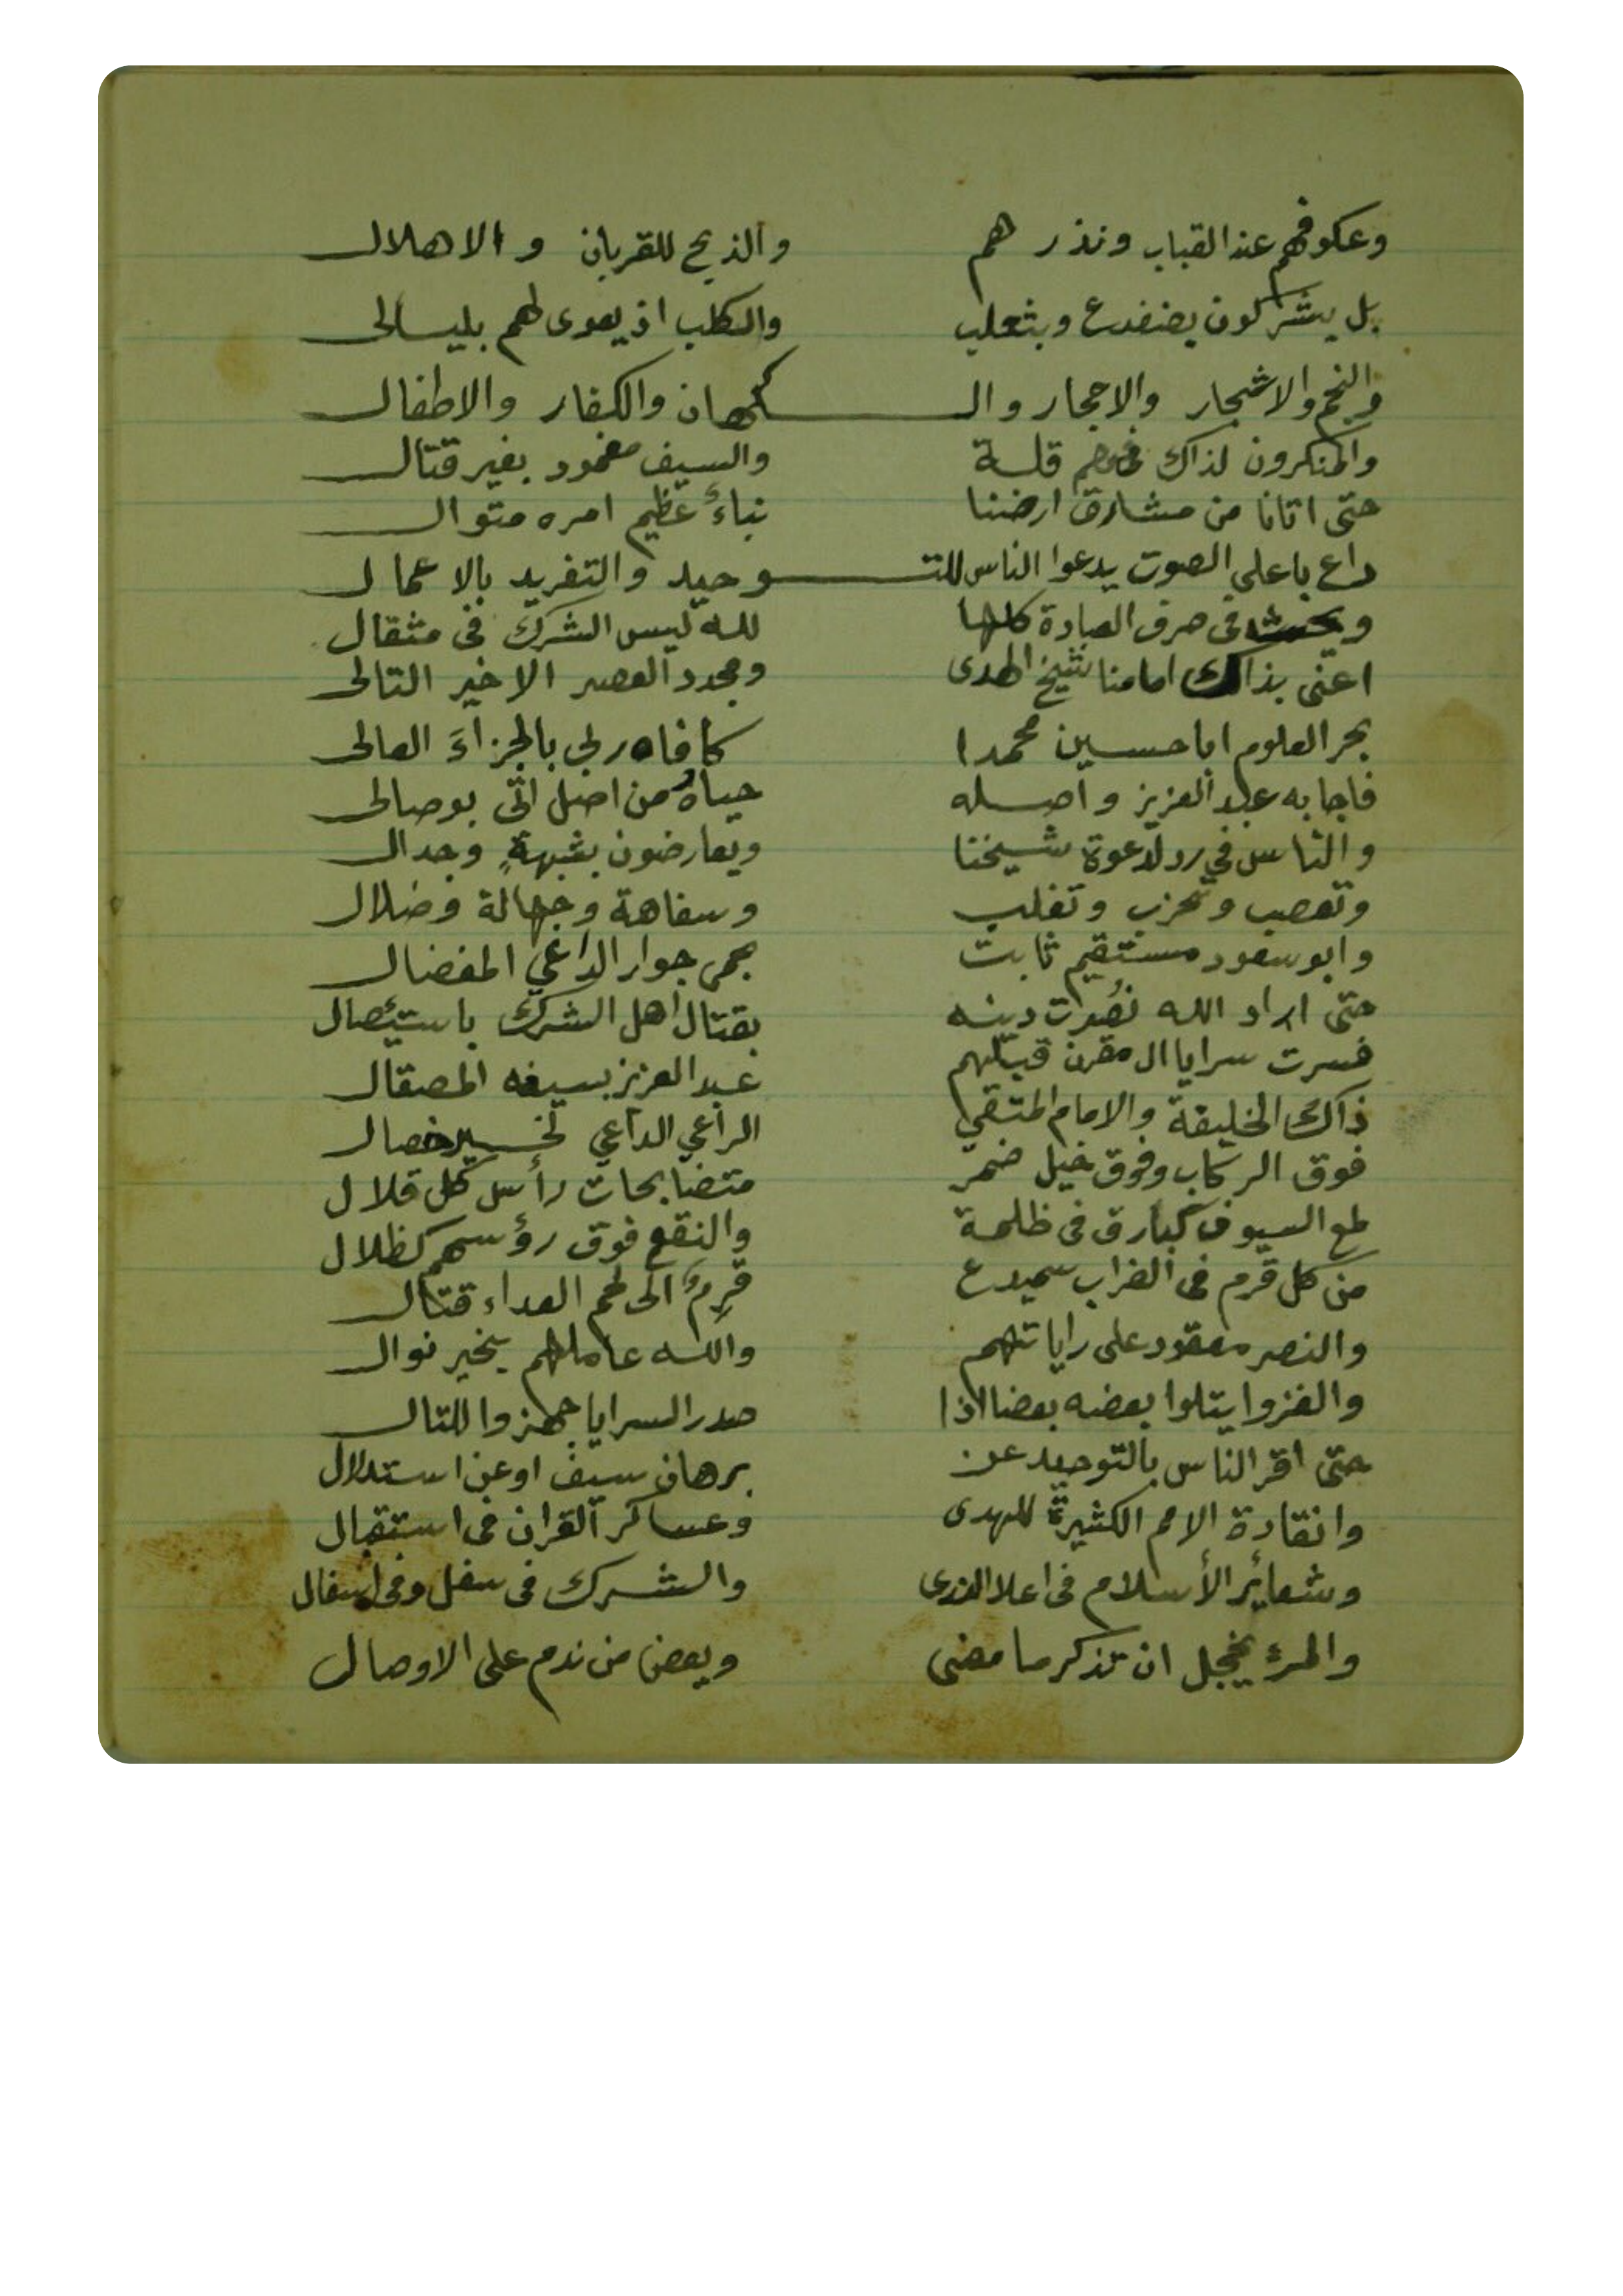 وعكوفهم عند القباب ونذرهم والذبح للقربان والاهلال
بل يشركون بضفدع وبثعلب والكلب اذ يعوى لهم بليالى
والنجم والاشجار والاحجار والـ ـكهان والكفار والاطفال
والمنكرون لذاك فهم قلة والسيف مغمود بغير قتال
حتى اتانا من مشارق ارضنا نباءٌ عظيم امره متوال
داع باعلي الصوت يدعوا الناس للتـ ـوحيد والتفريد بالاعمال
ويحث في صرف العبادة كلها لله ليس الشرك في مثقال
اعنى بذاك امامنا شيخ الهدى ومجدد العصر الاخير التالى
بحر العلوم ابا حسين محمدا كافاه ربي بالجزاءَ العالى
فاجابه عبد العزيز واصله حياهُ من اصل اتى بوصالى
والناس في رد لدعوة شيخنا ويعارضون بشبهةٍ وجدال
وتعصب وتحزب وتغلب وسفاهة وجهالة وضلال
وابو سعود مستقيم ثابت بحمى جوار الداعي المفضال
حتى اراد الله نصرت دينه بقتال اهل الشرك باستئصال
فسرت سرايا ال مقرن قبلهم عبد العزيز بسيفه المصقال
ذاك الخليفة والامام المتقي الراعي الداعي لخير خصال
فوق الركاب وفوق خيل ضمر متضابحات رأس كل قلال
لمع السيوف كبارق فى ظلمة والنقع فوق رؤسهم كظلال
من كل قرم فى الضراب سميدع قرِمٌ الى لحم العداء قتال
والنصر معقود على راياتهم والله عاملهم بخير نوال
والغزوا يتلوا بعضه بعضا اذا صدر السرايا جهزوا للتال
حتى اقر الناس بالتوحيد عن برهان سيف او عن استدلال
وانقادة الامم الكثيرة للهدى وعساكر القران فى استقبال
وشعائر الأسلام فى اعلا الذرى والشرك فى سفل وفى اسفال
والمرئ يخجل ان تذكر ما مضى ويعض من ندم على الاوصال